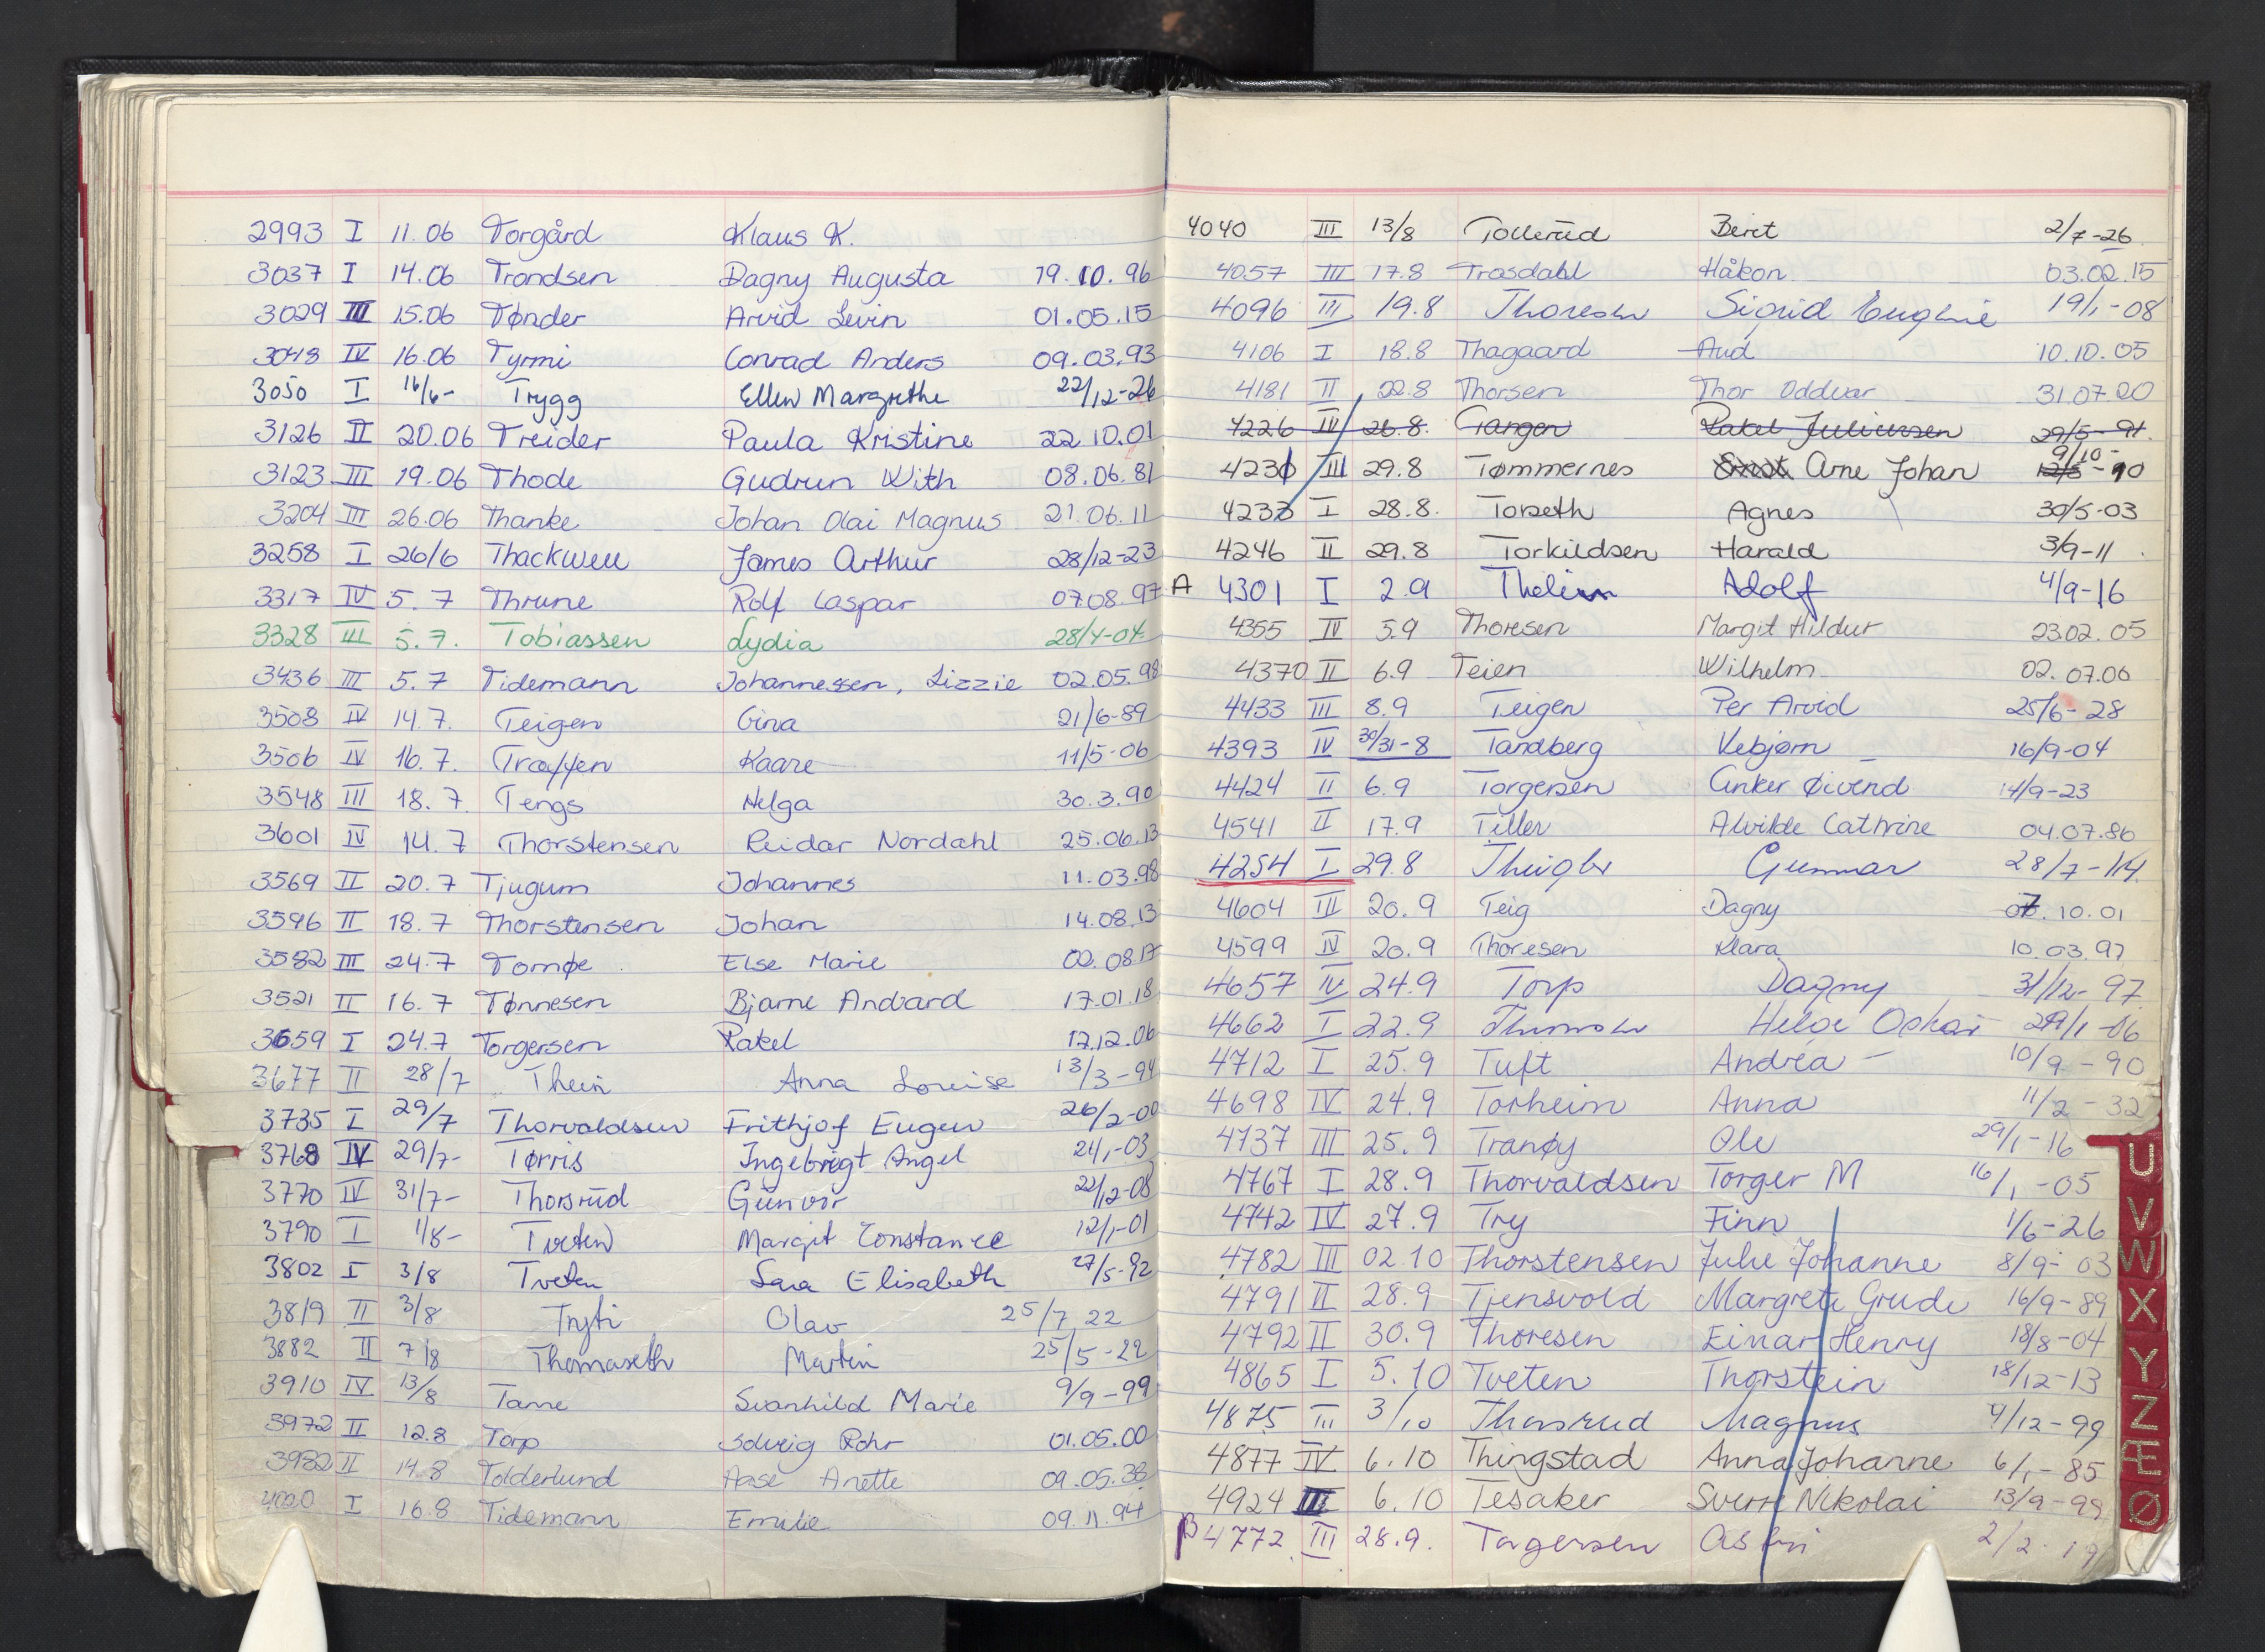 2993 I 11.06 Torgård Klaus K.
3037 I 14.06 Trondsen Dagny Augusta 19.10.96
3029 III 15.06 Tønder Arvid Levin 01.05.15
3048 IV 16.06 Tyrmi Conrad Anders 09.03.93
3050 I 16/6- Trygg Ellen Margrethe 22/12-26
3126 II 20.06 Treider Paula Kristine 22.10.01
3123 III 19.06 Thode Gudrun With 08.06.81
3204 III 26.06 Thanke Johan Olai Magnus 21.06.11
3258 I 26/6 Thackwell James Arthur 28/12-23
3317 IV 5.7 Thrane Rolf Caspar 07.08.97
3328 III 5.7. Tobiassen Lydia 28/4-04
3436 III 5.7 Tidemann Johannessen, Lizzie 02.05.98
3508 IV 14.7. Teigen Gina 21/6-89
3506 IV 16.7. Kaare 11/5-06
3548 III 18.7. Tengs Helga 30.3.90
3601 IV 14.7 Thorstensen Reidar Nordahl 25.06.13
3569 II 20.7 Tjugum Johannes 11.03.98
3596 II 18.7 Thorstensen Johan 14.08.13
3582 III 24.7 Tomøe Else Marie 02.08.17
3521 II 16.7 Tønnesen Bjarne Andvard 17.01.18
3659 I 24.7 Torgersen Rakel 12.12.06
3677 II 28/7 Thein Anna Louise 13/3-94
3735 I 29/7 Thorvaldsen Frithjof Eugen 26/2-00
3768 IV 29/7- Tørris Ingebrigt Angel 24/1-03
3770 IV 31/7- Thorsrud Gunvor 22/12-08
3790 I 1/8- Tveten Margit Constance 12/1-01
3802 I 3/8 Tveten Sara Elisabeth 27/5-92
3819 II 3/8 Tryti Olav 25/7 22
3882 II 7/8 Thomaseth Martin 25/5-22
3910 IV 13/8 Tarre Svanhild Marie 9/9-99
3972 II 12.8 Torp Solveig Rohr 01.05.00
3982 II 14.8 Tolderlund Aase Anette 09.05.38
4020 I 16.8 Tidemann Emilie 09.11.94
4040 III 13/8 Tollerud Beret 2/7-26
4057 III 17.8 Trasdahl Håkon 03.02.15
4096 III 19.8 Thoresen Sigrid Eugenie 19/1-08
4106 I 18.8 Thagaard Aud 10.10.05
4181 II 22.8 Thorsen Thor Oddvar 31.07.20
4226 IV 26.8. Tangen Rakel Juliussen 29/5-91.
4231 III 29.8 Tømmernes Arne Johan 9/10-10
4233 I 28.8. Torseth Agnes 30/5-03
4246 II 29.8 Torkildsen Harald 3/9-11
A 4301 I 2.9 Thelin Adolf 4/9-16
4355 IV 5.9 Thoresen Margit Hildur 23.02.05
4370 II 6.9 Teien Wilhelm 02.07.00
4433 III 8.9 Teigen Per Arvid 25/6-28
4393 IV 30/31-8 Tandberg Vebjørn 16/9-04
4424 II 6.9 Torgersen Anker Øivind 14/9-23
4541 II 17.9 Tiller Alvilde Cathrine 04.07.86
4254 I 29.8 Gunnar 28/7-14.
4604 III 20.9 Teig Dagny 07.10.01
4599 IV 20.9 Thoresen Klara 10.03.97
4657 IV 24.9 Torp Dagny 31/12-97
4662 I 22.9 Helge Oskar 29/1-06
4712 I 25.9 Tuft Andrea 10/9-90
4698 IV 24.9 Torheim Anna 11/2-32
4737 III 25.9 Tranøy Ole 29/1-16
4767 I 28.9 Thorvaldsen Torger M 16/1-05
4742 IV 27.9 Try Finn 1/6-26
4782 III 02.10 Thorstensen Julie Johanne 8/9-03
4791 II 28.9 Tjensvold Margrete Grude 16/9-89
4792 II 30.9 Thoresen Einar Henry 18/8-04
4865 I 5.10 Tveten Thorstein 18/12-13
4875 III 3/10 Thorsrud Magnus 4/12-99
4877 IV 6.10 Thingstad Anna Johanne 6/1-85
4924 III 6.10 Tesaker Sverre Nikolai 13/9-99
β 4772 III 28.9. Torgersen 2/2-19
U
V
W
X
Y
Z
Æ
Ø